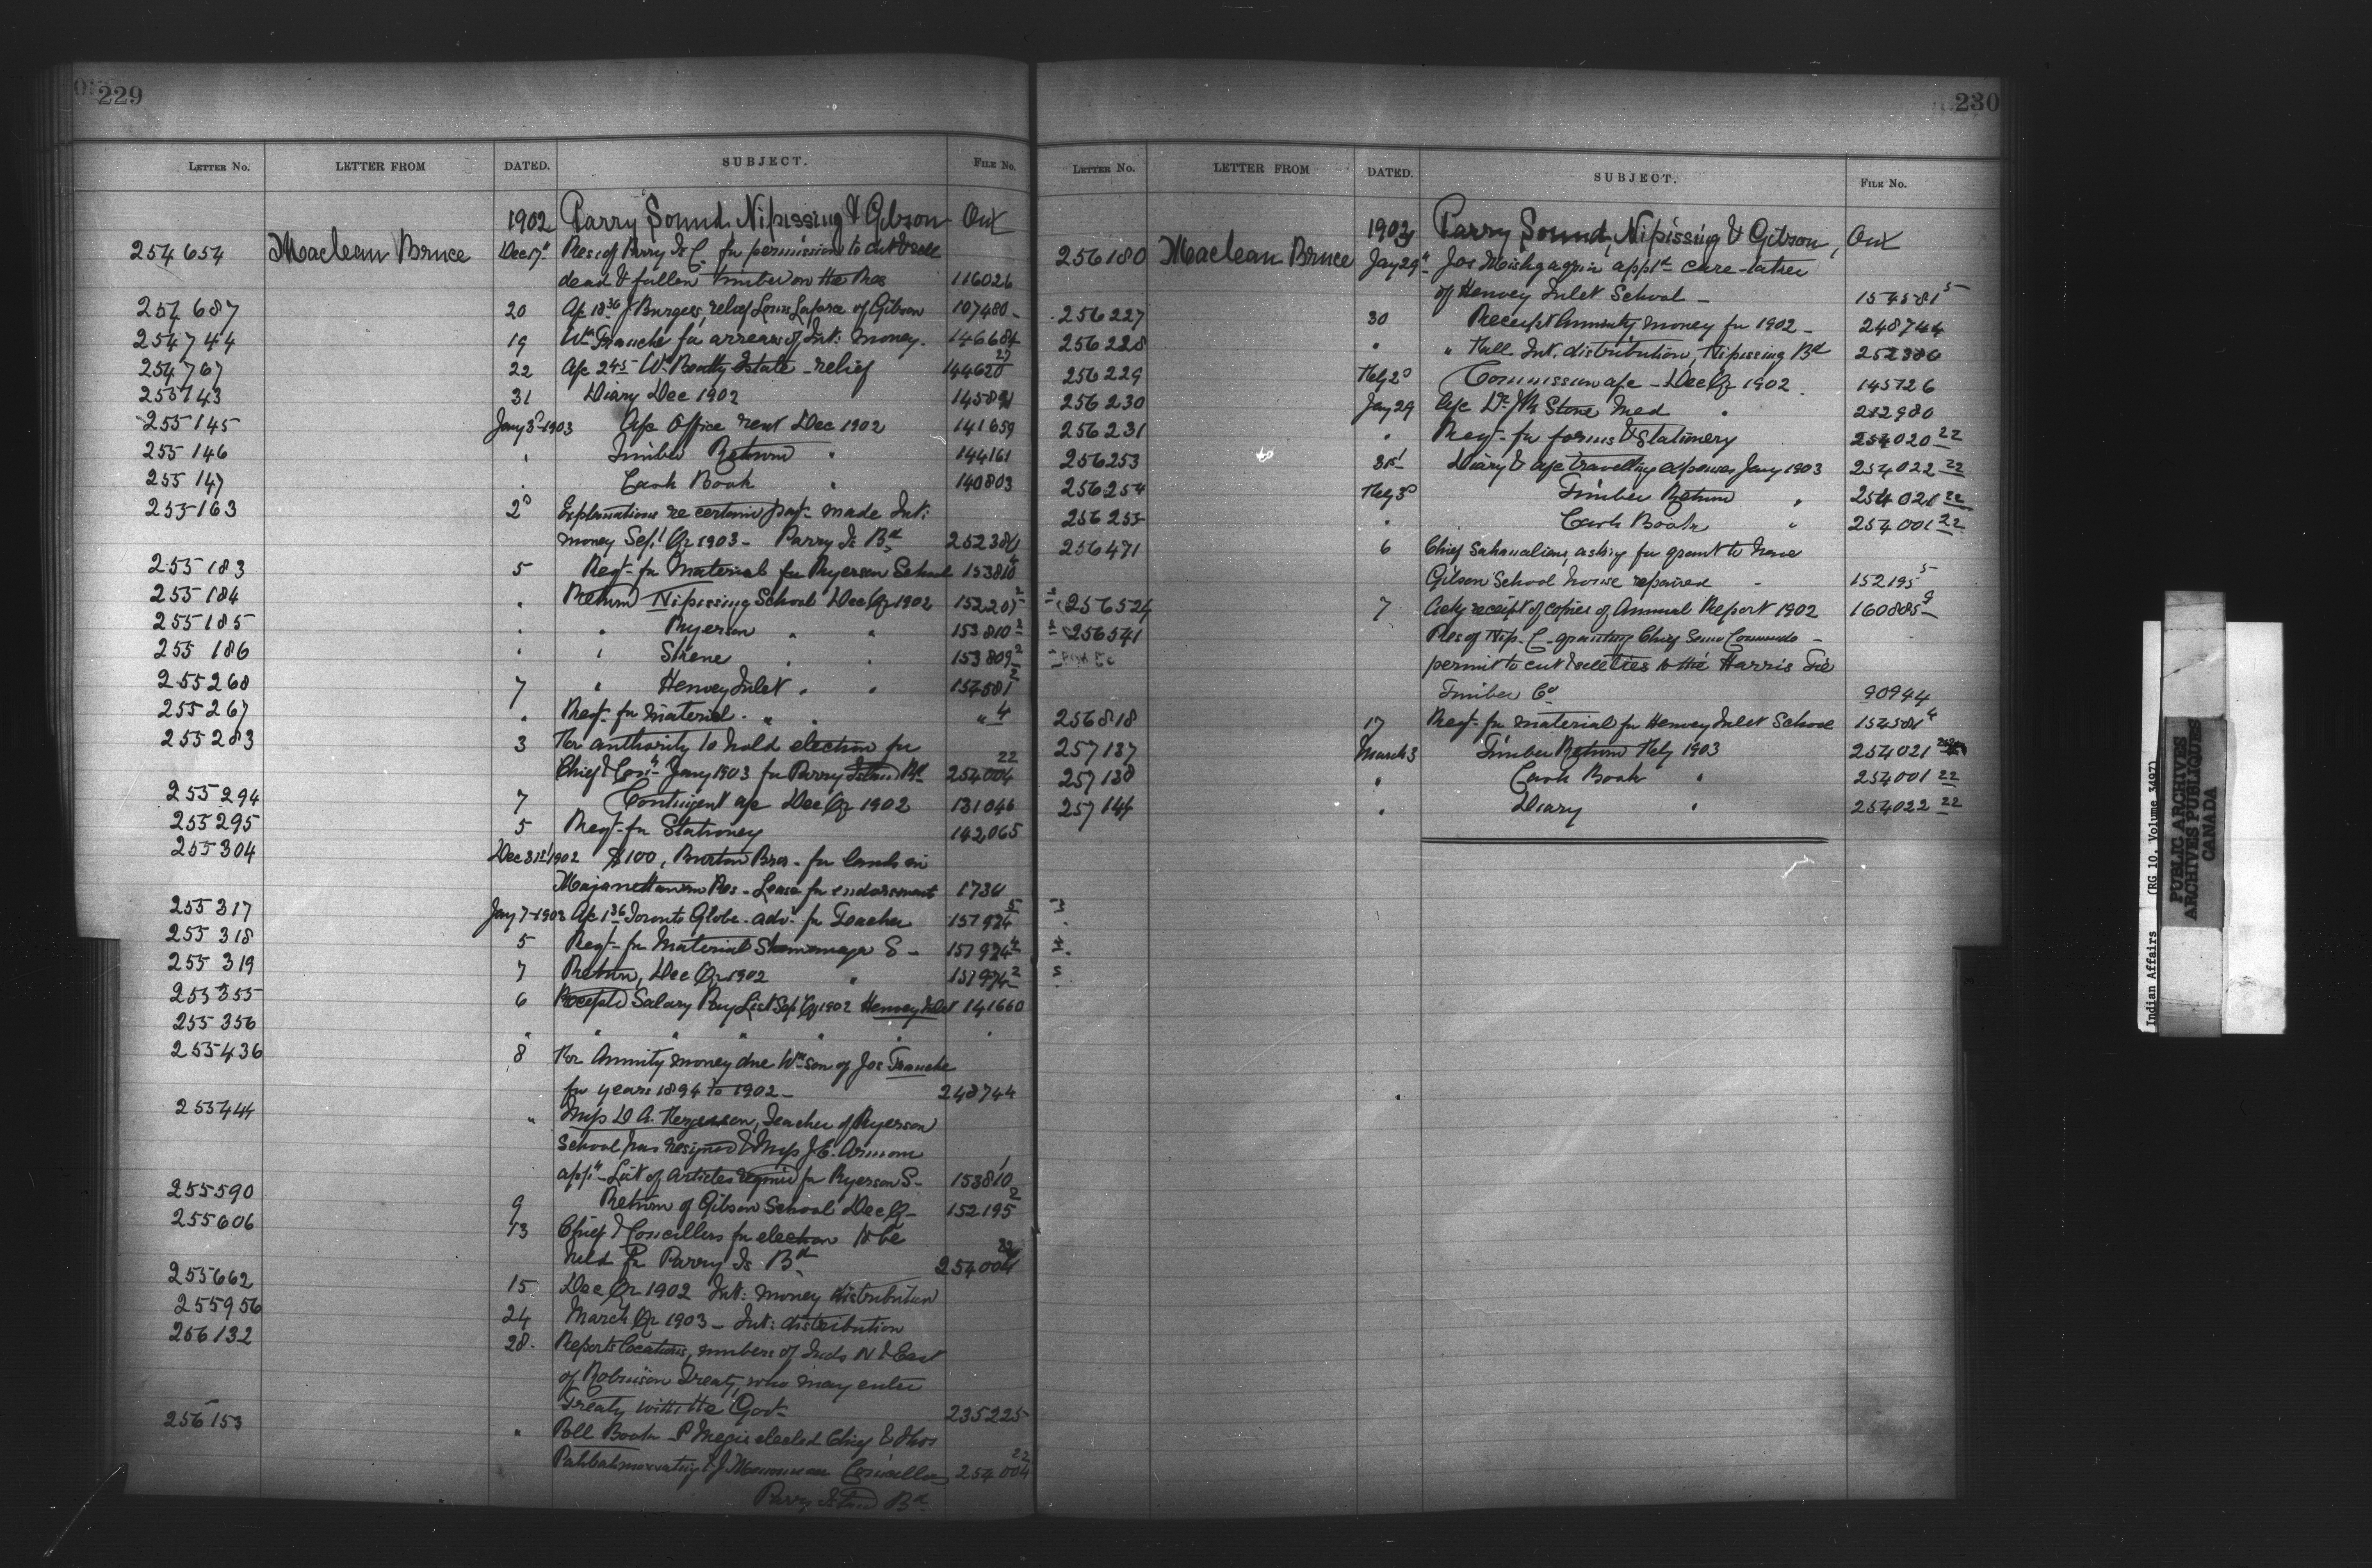 229
LETTER No. LETTER FROM DATED. SUBJECT. FILE No.
1902 Parry Sound, Nipissing & Gibson Ont
254654 Maclean Bruce Dec 17" Res: of Parry Is C. for permission to cut & sell
dead & fallen timber on the Res 116026
254687 20 J Burgess, relief Louis Laforce of Gibson 107480
254744 19 Wm Tranche for arrears of Int: money. 146684
254767 22 a/c 2 45 W. Beatty Estate - relief 144620 27
255143 31 Diary Dec 1902
255145 Jany 3d 1903 a/c Office rent Dec 1902 141659
255146 " Timber Return " 144161
255147 " Cash Book " 140803
255163 2d Explanations re certain payt made Int:
money Sept Qr 1903 - Parry Is Bd 252386
255183 5 Reqt for Material for Ryerson School 153810 4
255184 " Return Nipissing School Dec Qr 1902 152207 2
255185 " " Ryerson " " 153810 2
255186 " " Skene " " 153809 2
255268 7 " Henvey Inlet " " 154581 2
255267 " Reqt for Material " " " 4
255283 3 For authority to hold election for
Chief & Conrs Jany 1903 for Parry Island Bd 254004 22
255294 7 Contingent a/c Dec Qr 1902 131046
255295 5 Reqt for Stationey 142065
255304 Dec 31st 1902 $100, Burton Bros - for lands in
Res - Lease for endorsement 1736
255317 Jany 7-1903 a/c 1 36 Toronto Globe - advt for Teacher 157924 5
255318 5 Reqt for Material Shawanaga S - 157924 4
255319 7 Return, Dec Qr 1902 " 157924 2
255355 6 Receipted Salary Pay List Sep Qr 1902 Henvey Inlet 141660
255356 " " " " " " "
255436 8 For Annuity money due Wm son of Jos Tranche
for years 1894 to 1902 - 248744
255444 " Miss D A. Fergusson, Teacher of Ryerson
School has resigned & Miss J. E. Armour
appt - List of articles required for Ryerson S - 153810 1
255590 9 Return of Gibson School Dec Q - 152195 2
255606 13 Chief & Concillers for election to be
held for Parry Is Bd 254004 22
255662 15 Dec Qr 1902 Int: money distribution
255956 24 March Qr 1903 - Int: distribution
256132 28 - Reports locations, numbers of Inds N & East
of Robinson Treaty, who may enter
Treaty with the Govt 235225
256153 " Poll Book - P Megis elected Chief & Thos
Pahbahmowatung & J Councillors 254004 22
Parry Island Bd
230
LETTER No. LETTER FROM DATED. SUBJECT. FILE No.
1903 Parry Sound, Nipissing & Gibson, Ont
256180 Maclean Bruce Jany 29" Jos appt care-taker
of Henvey Inlet School - 154581 5
256227 30 Receipt Annuity money for 1902 - 248744
256228 " " Half. Int. distribution, Nipissing Bd 252386
256229 Feby 2d Commission a/c - Dec Qr 1902 145726
256230 Jany 29 a/c Dr J R Stone Med " 212980
256231 " Reqt - for forms & Stationery 254020 22
256253 31st Diary & a/c travelling expenses Jany 1903 254022 22
256254 Feby 3d Timber Return " 254021 22
256255 " Cash Book " 254001 22
256471 6 Chief Sahanatien, asking for grant to have
Gibson School house repaired - 152195 5
256524 7 Ackg receipt of copies of Annual Report 1902 160885 9
256541 Res of Nip. C - granting Chief Semo Commando -
permit to cut & sell ties to the Harris Tie
Timber Co 90944
256818 17 Reqt - for material for Henvey Inlet School 154581 4
257137 March 3 Timber Return Feby 1903 254021
257138 " Cash Book " 254001 22
257144 " Diary " 254022 22
Indian Affairs (RG 10, Volume 3497)
PUBLIC ARCHIVES
ARCHIVES PUBLIQUES
CANADA